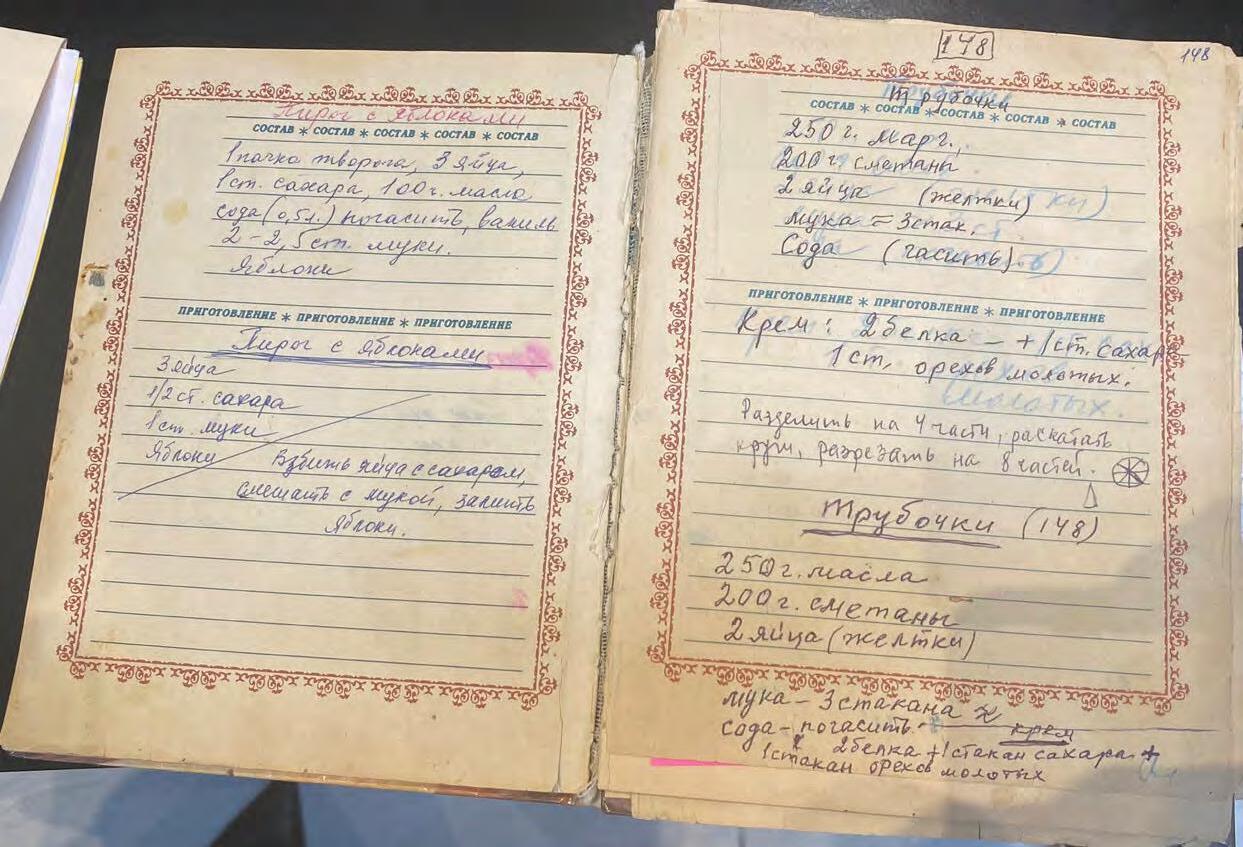 Пирог с яблоками
СОСТАВ * СОСТАВ * СОСТАВ * СОСТАВ * СОСТАВ
1 пачка творога, 3 яйца,
1 ст. сахара, 100 г. масла
сода (0,5 л.) погасить, ваниль
2 - 2,5 ст. муки.
Яблоки
ПРИГОТОВЛЕНИЕ * ПРИГОТОВЛЕНИЕ * ПРИГОТОВЛЕНИЕ
Пирог с яблоками
3 яйца
1/2 ст. сахара
1 ст. муки
Яблоки Взбить яйца с сахаром,
смешать с мукой, залить
яблоки.
148
148
Трубочки
СОСТАВ * СОСТАВ * СОСТАВ * СОСТАВ * СОСТАВ
250 г. марг.,
200 г сметаны
2 яйца (желтки)
мука = 3 стак.
Сода (гасить).
ПРИГОТОВЛЕНИЕ * ПРИГОТОВЛЕНИЕ * ПРИГОТОВЛЕНИЕ
Крем: 2 белка - + 1 ст. сахара
1 ст. орехов молотых.
молотых.
Разделить на 4 части, раскатать
круг, разрезать на 8 частей.
Трубочки (148)
250 г. масла
200 г. сметаны
2 яйца (желтки)
мука - 3 стакана ≈
сода - погасить.
крем
2 белка + 1 стакан сахара +
1 стакан орехов молотых